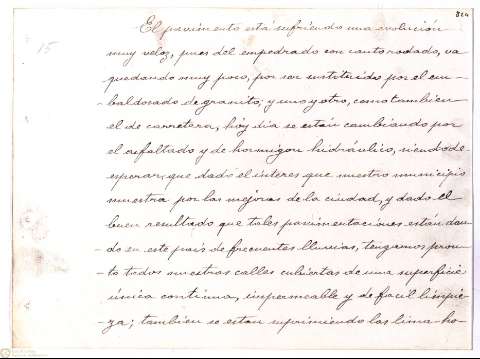 82a
15
El pavimento está sufriendo una evolución
muy veloz, pues del empedrado con canto rodado, va
quedando muy poco, por ser sustituido por el em-
baldosado de granito; y uno y otro, como tambien
el de carretera, hoy dia se están cambiando por
el asfaltado y de hormigon hidráulico, siendo de
esperar, que dado el interes que nuestro municipio
muestra por las mejoras de la ciudad, y dado el
buen resultado que tales pavimentaciones están dan-
do en este pais de frecuentes lluvias, tengamos pron-
to todas nuestras calles cubiertas de una superficie
única continua, impermeable y de facil limpie-
za; tambien se estan suprimiendo las lima-ho-